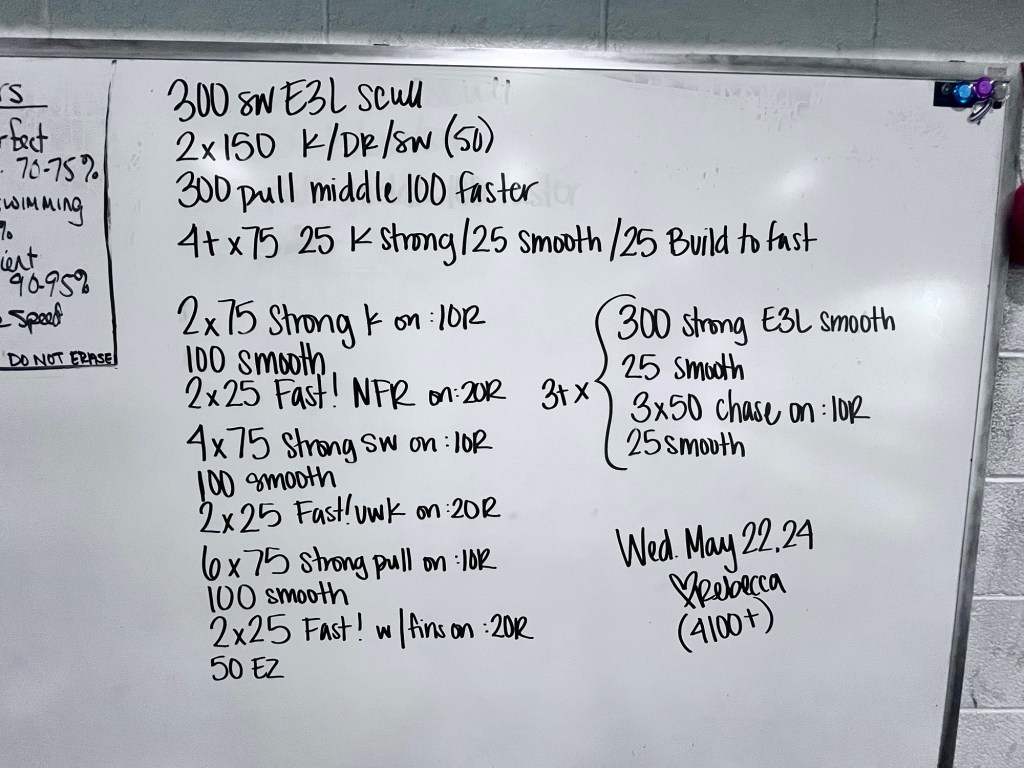 rs
70-75%
SWIMMING
%
90-95%
Speed
DO NOT ERASE
300 SW E3L Scull
2x150 K/DR/SW (50)
300 pull middle 100 faster
4+ x75 25 K Strong/25 smooth/25 Build to fast
2x75 Strong K on :10R
100 smooth
2x25 Fast! NFR on :20R
4x75 Strong SW on :10R
100 smooth
2x25 Fast! UWK on :20R
6x75 Strong pull on :10R
100 smooth
2x25 Fast! w/fins on :20R
50 EZ
3+ x
300 strong E3L smooth
25 smooth
3x50 chase on :10R
25 smooth
Wed. May 22.24
♡Rebecca
(4100+)